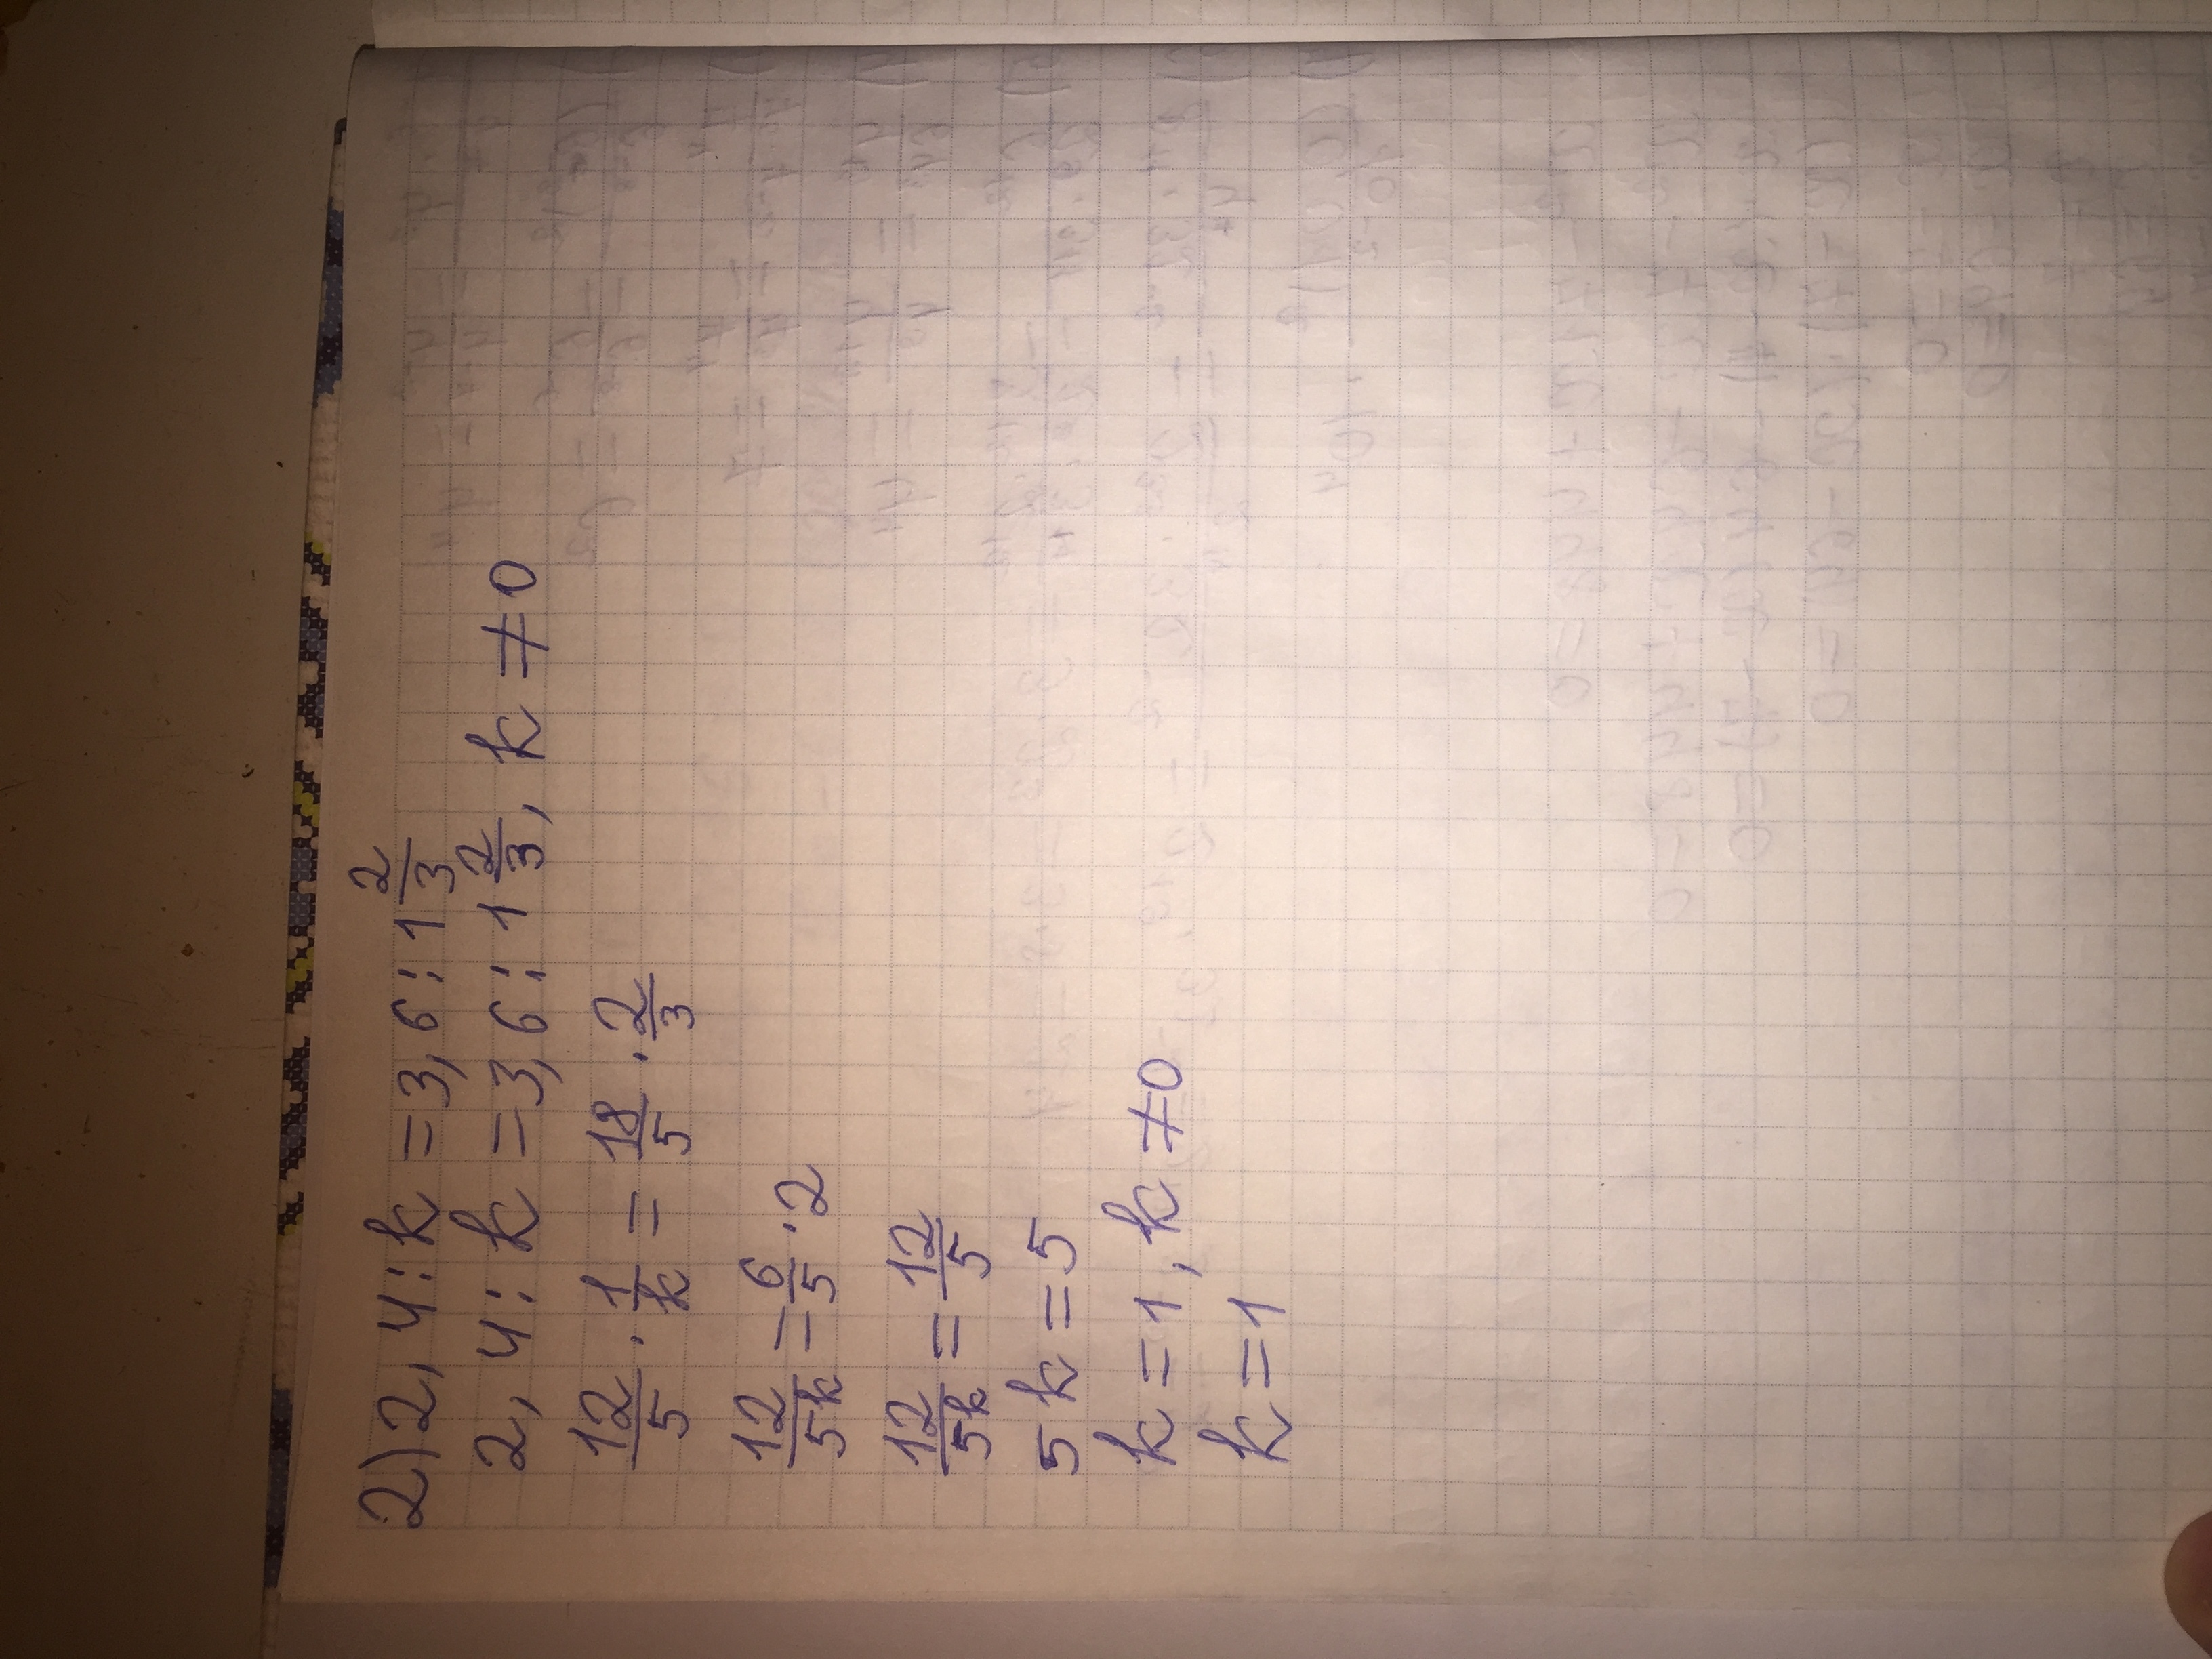 2) 2,4 : k = 3,6 : 1 2/3
2,4 : k = 3,6 : 1 2/3, k ≠ 0
12/5 · 1/k = 18/5 · 2/3
12/5k = 6/5 · 2
12/5k = 12/5
5k = 5
k = 1, k ≠ 0
k = 1